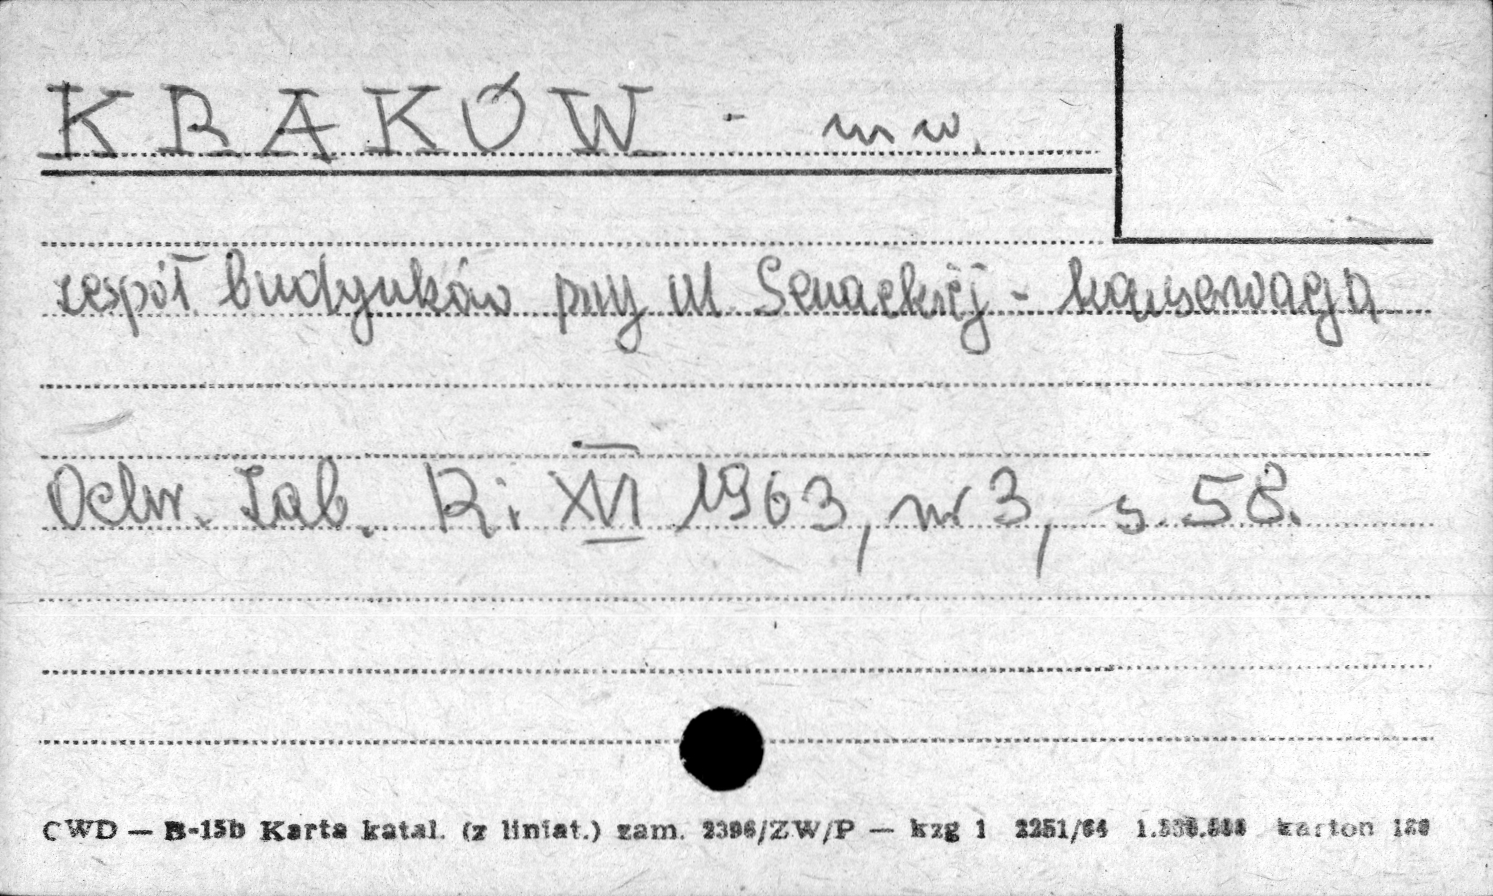 KRAKÓW - m w.
zespół budynków przy ul Senackiej - konserwacja
Ochr. Zab. R: XVI 1963, nr 3, s. 58.
CWD — B-15b Karta katal. (z liniat.) zam. 2396/ZW/P — kzg 1 2251/64 karton